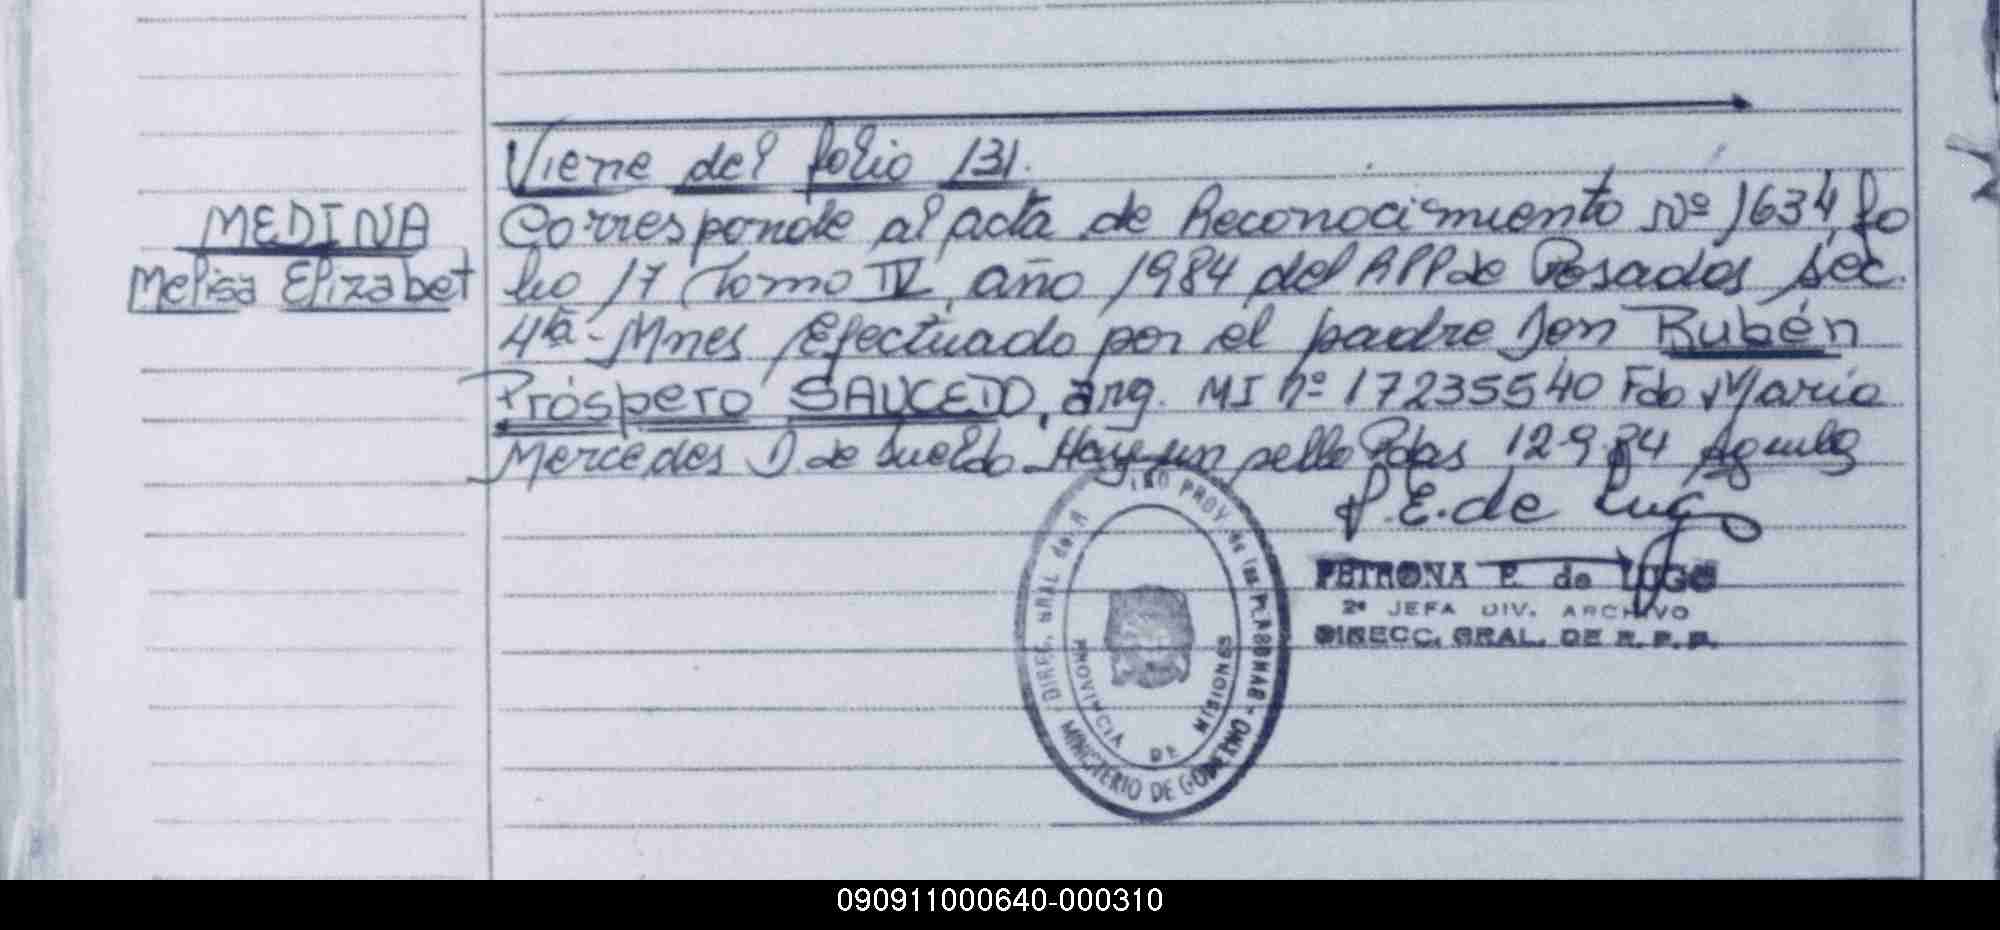 Viene del folio 131.
MEDINA
Melisa Elizabet
Corresponde al acta de Reconocimiento Nº 1634, fo
lio 17 Tomo IV, año 1984 del RPP de Posadas, Sec.
4ta - Mnes Efectuado por el padre Don Rubén
Próspero SAUCEDO, arg. MI nº 17235540 Fdo María
Mercedes D. de Sueldo Hay un sello Pdas 12 9 84
P.E. de Lugo
PETRONA E. de LUGO
2ª JEFA DIV. ARCHIVO
DIRECC. GRAL. DE R. P. P.
DIREC. GRAL del REG PROV. de las PERSONAS - MINISTERIO DE GOBIERNO
PROVINCIA DE MISIONES
090911000640-000310